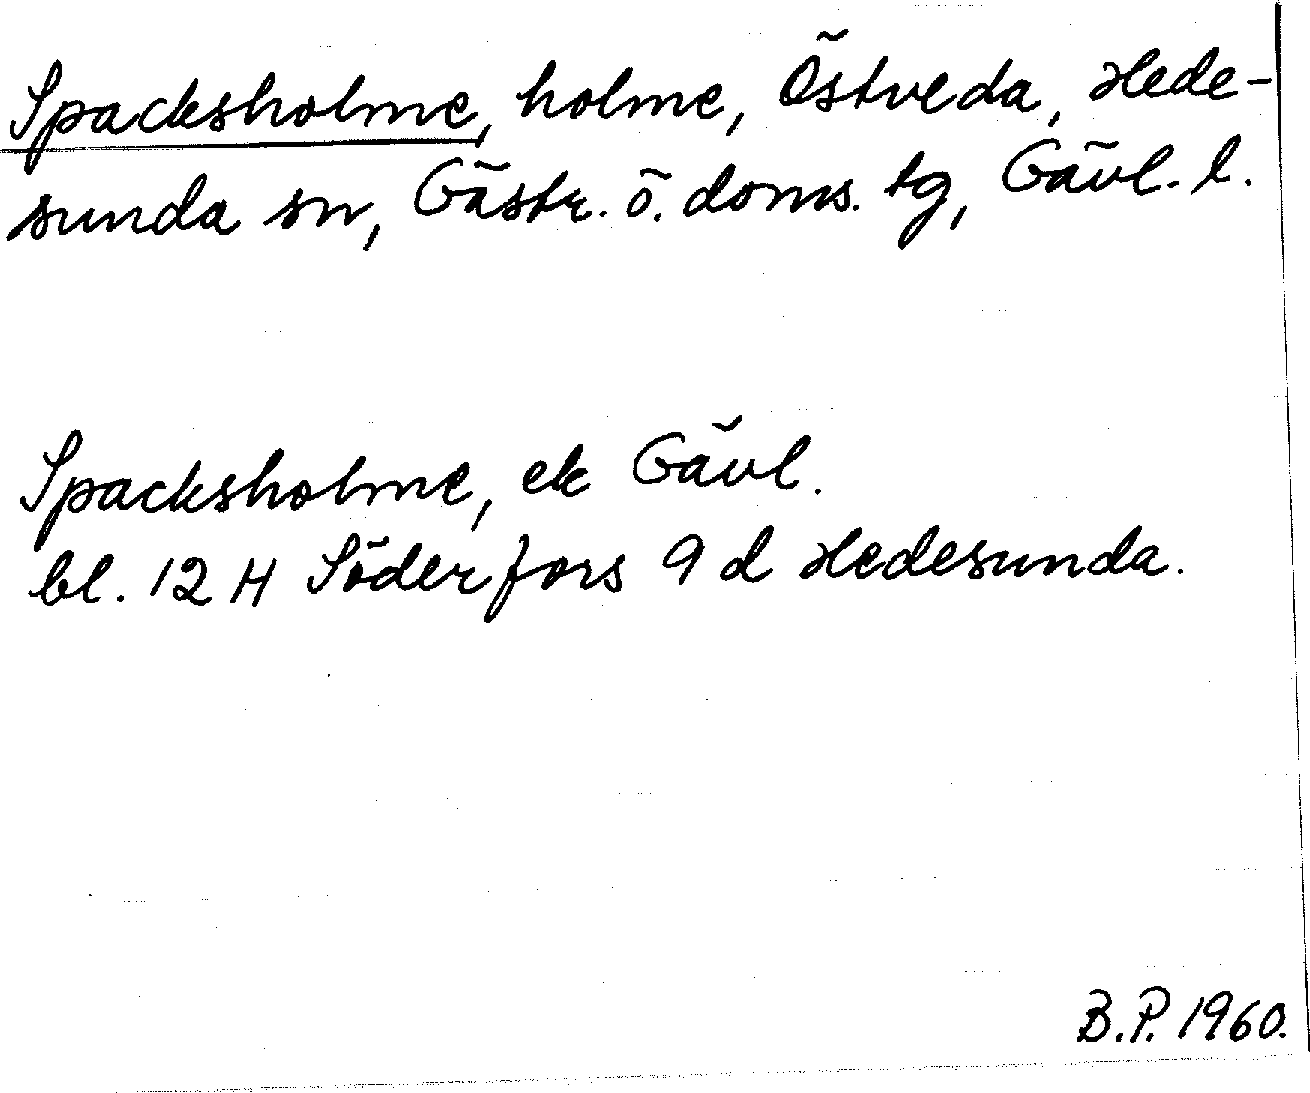 Spacksholme, holme, Östveda, Hede-
sunda sn, Gästr. ö. doms. tg, Gävl. l.
Spacksholme, ek Gävl.
bl. 12 H Söderfors 9 d Hedesunda.
B.P. 1960.